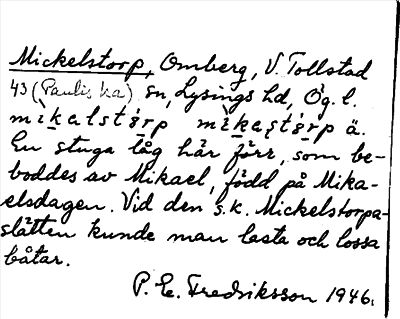 Mickelstorp, Omberg, V. Tollstad
43 (Paulis ka) sn, Lysings hd, Ög. l.
mìkalstórp mìkaʂtórp ä.
En stuga låg här förr, som be-
boddes av Mikael, född på Mika-
elsdagen. Vid den s.k. Mickelstorpa-
slätten kunde man lasta och lossa
båtar.
P. E. Fredriksson 1946.